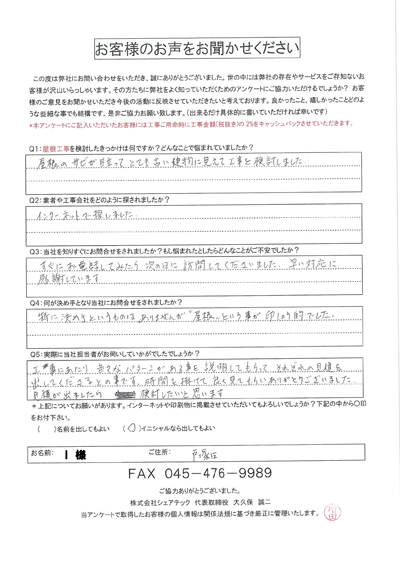 お客様のお声をお聞かせください
この度は弊社にお問い合わせをいただき、誠にありがとうございました。世の中には弊社の存在やサービスをご存知ないお
客様が沢山いらっしゃいます。その方たちに弊社をよく知っていただくためのアンケートにご協力いただけるでしょうか? お客
様のご意見をお聞かせいただき今後の活動に反映させていただきたいと考えております。良かったこと、嬉しかったことどのよう
な些細な事でも結構です。是非ご協力お願い致します。(出来るだけ具体的に書いていただければ幸いです)
*本アンケートにご記入いただいたお客様には工事ご用命時に工事金額(税抜き)の2%をキャッシュバックさせていただきます。
Q1:屋根工事を検討したきっかけは何ですか?どんなことで悩まれていましたか?
屋根のサビが目立ってとても古い建物に見えて工事を検討しました
Q2:業者や工事会社をどのように探されましたか?
インターネットで探しました.
Q3:当社を知りすぐにお問合せをされましたか?もし悩まれたとしたらどんなことがご不安でしたか?
すぐにお電話してみたら次の日に訪問してくださいました. 早い対応に
感謝しています
Q4:何が決め手となり当社にお問合せをされましたか?
特に決め手というものはありませんが"屋根"という事が印しょう的でした.
Q5:実際に当社担当者がお伺いしていかがでしたでしょうか?
工事にあたり 色々なパターンがある事を説明してもらって それぞれの見積を
出してくださるとの事です. 時間を掛けて良く見てもらいありがとうございました.
見積が出ましたら 検討したいと思います
*上記についてお願いがあります。インターネットや印刷物に掲載させていただいてもよろしいでしょうか?下記の中から〇印
をお付下さい。
( )名前を出してもよい (〇)イニシャルなら出してもよい
お名前: I 様 ご住所: 戸塚区
FAX 045-476-9989
ご協力ありがとうございました。
株式会社シェアテック 代表取締役 大久保 誠二
当アンケートで取得したお客様の個人情報は関係法規に基づき厳正に管理いたします。